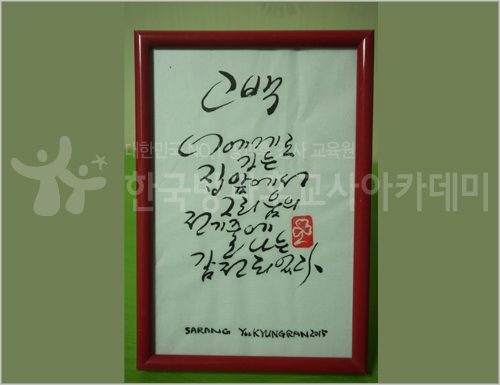 고백
너에게로
가는
집 앞에서
그리움의
전기줄에
나는
감전되었다.
SARANG YooKYUNGRAN2015
대한민국 NO.1 교육원
한국방과후교사아카데미